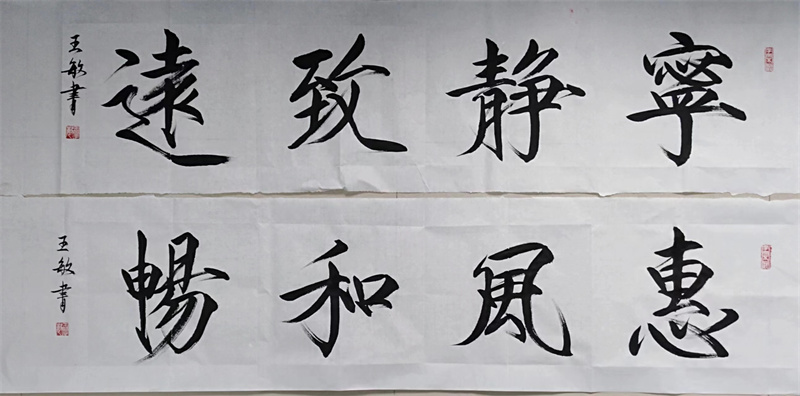 寧静致遠
王敏書
惠風和暢
王敏書